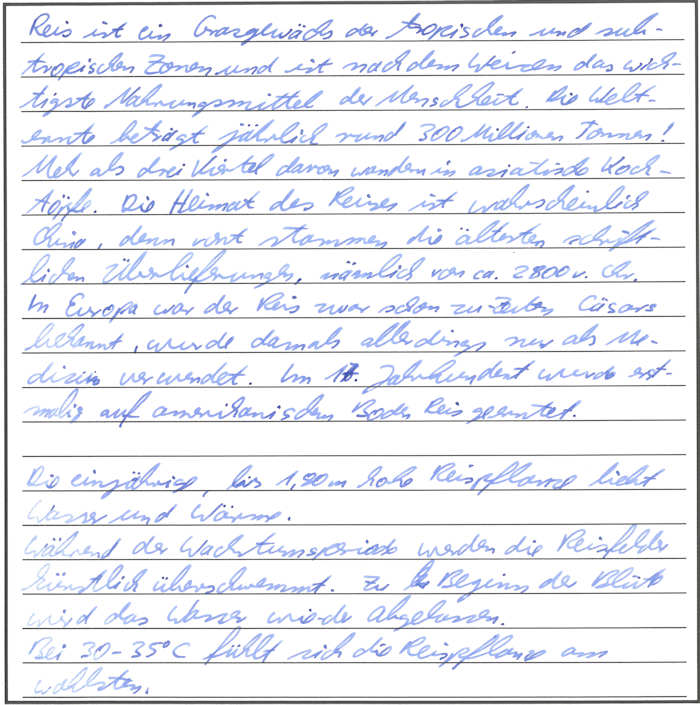 Reis ist ein Grasgewächs der tropischen und sub-
tropischen Zonen und ist nach dem Weizen das wich-
tigste Nahrungsmittel der Menschheit. Die Welt-
ernte beträgt jährlich rund 300 Millionen Tonnen!
Mehr als drei Viertel davon wandern in asiatische Koch-
töpfe. Die Heimat des Reises ist wahrscheinlich
China, denn von dort stammen die ältesten schrift-
lichen Überlieferungen, nämlich von ca. 2800 v. Chr.
In Europa war der Reis zwar schon zu Zeiten Cäsars
bekannt, wurde damals allerdings nur als Me-
dizin verwendet. Im 17. Jahrhundert wurde erst-
malig auf amerikanischem Boden Reis geerntet.
Die einjährige, bis 1,80 m hohe Reispflanze liebt
Wasser und Wärme.
Während der Wachstumsperiode werden die Reisfelder
künstlich überschwemmt. Zu Beginn der Blüte
wird das Wasser wieder abgelassen.
Bei 30-35°C fühlt sich die Reispflanze am
wohlsten.